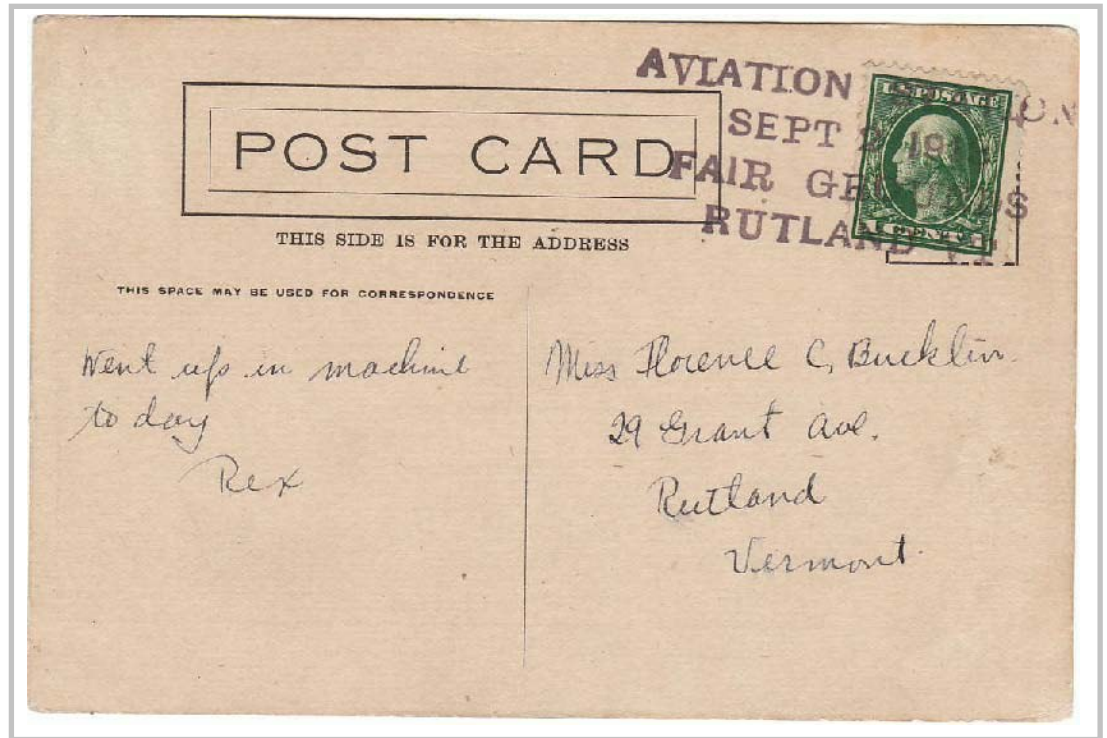 AVIATION
SEPT 2 19
FAIR GROUNDS
RUTLAND VT.
U.S. POSTAGE
POST CARD
THIS SIDE IS FOR THE ADDRESS
THIS SPACE MAY BE USED FOR CORRESPONDENCE
Went up in machine
to day
Rex
Miss Florence C, Bucklin.
29 Grant Ave.
Rutland
Vermont.